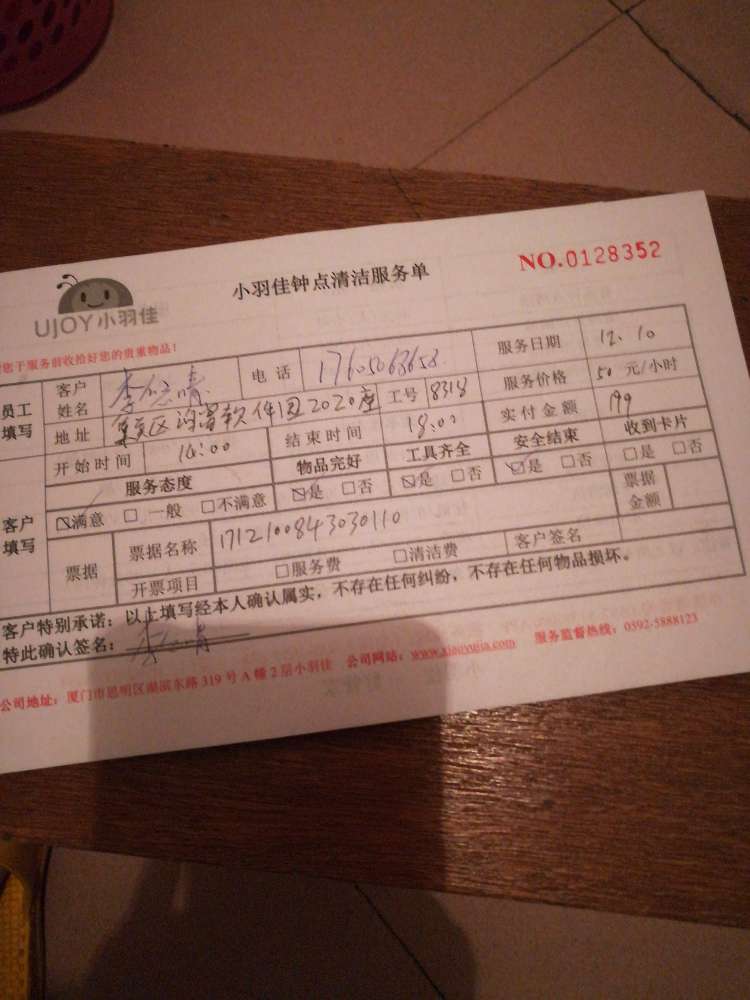 UJOY小羽佳
小羽佳钟点清洁服务单
NO.0128352
您于服务前收拾好您的贵重物品！
员工填写
客户姓名 李 晴 电话 服务日期 12.10
地址 区 软件园2020座 工号 8318 服务价格 50 元/小时
开始时间 14:00 结束时间 18:00 实付金额 199
客户填写
服务态度 物品完好 工具齐全 安全结束 收到卡片
☑满意 □ 一般 □不满意 ☑是 □否 ☑是 □否 ☑是 □否 □是 □否
票据 票据名称 1712100843030110 票据金额
开票项目 □服务费 □清洁费 客户签名
客户特别承诺：以上填写经本人确认属实，不存在任何纠纷，不存在任何物品损坏。
特此确认签名：
公司地址：厦门市思明区湖滨东路 319 号 A 幢 2 层小羽佳 公司网站：www.xiaoyujia.com 服务监督热线：0592-5888123